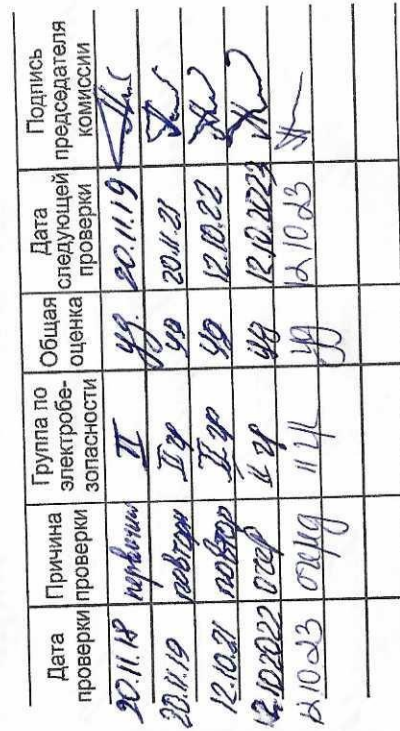 Дата проверки Причина проверки Группа по электробе-зопасности Общая оценка Дата следующей проверки Подпись председателя комиссии
20.11.18 первичн II уд. 20.11.19
20.11.19 повторн II гр уд 20.11.21
12.10.21 повтор II гр уд 12.10.22
12.10.2022 очер II гр уд 12.10.2023
12.10.23 очеред уд 12.10.23